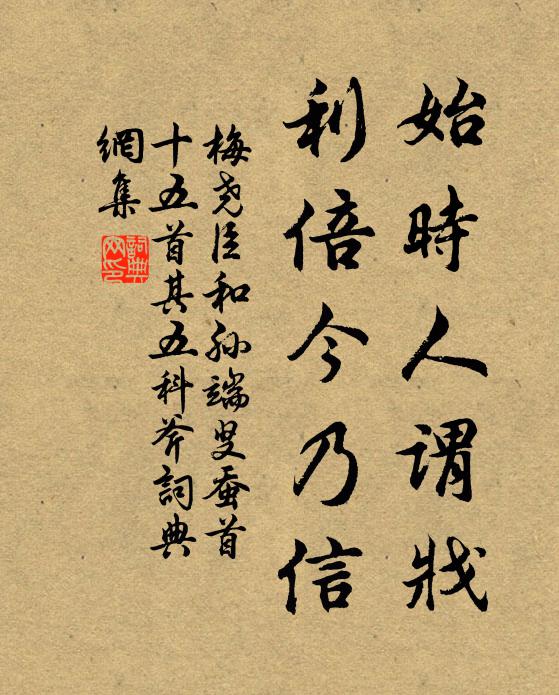 始時人謂戕
利倍今乃信
梅尧臣和孙端叟蚕首
十五首其五科斧詞典
網集
詞典网印